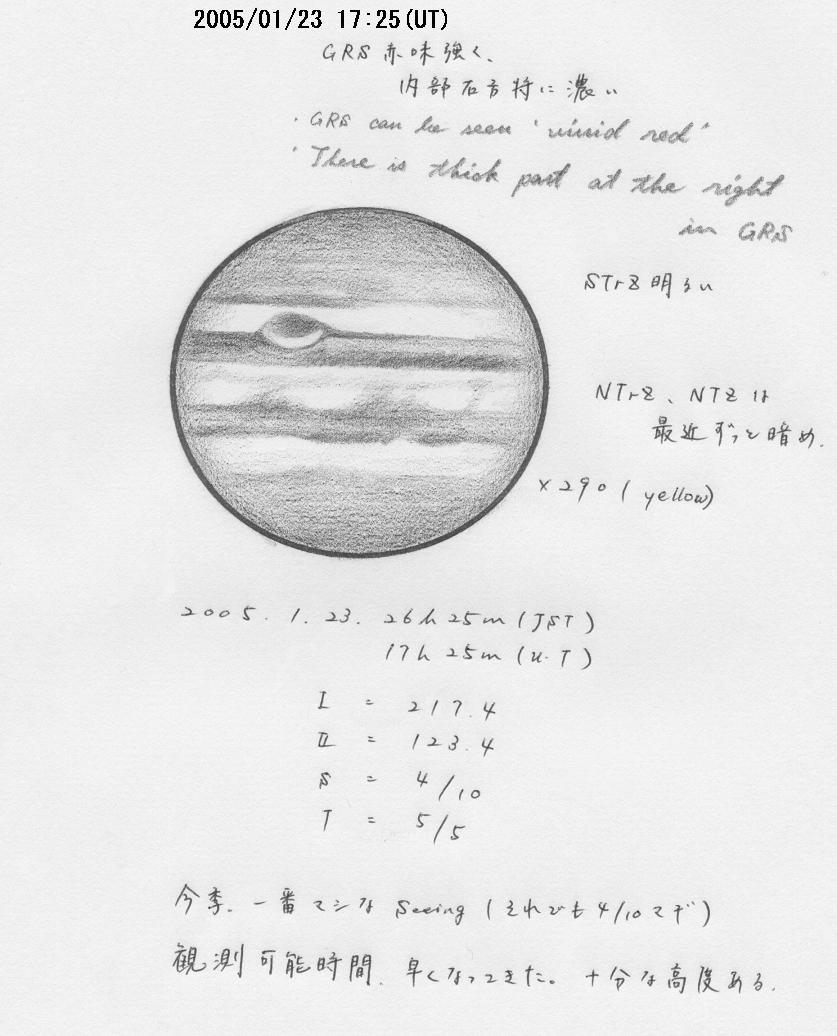 2005/01/23 17:25(UT)
GRS 赤味強く、
内部右方特に濃い
・GRS can be seen 'vivid red'
'There is thick part at the right
in GRS
STrZ 明るい
NTrZ、NTZは
最近ずっと暗め.
×290 (yellow)
2005. 1. 23. 26h 25m (JST)
17h 25m (U.T)
I = 217.4
II = 123.4
S = 4/10
T = 5/5
今季、一番マシな Seeing (それでも 4/10マデ)
観測可能時間、早くなってきた。十分な高度ある.